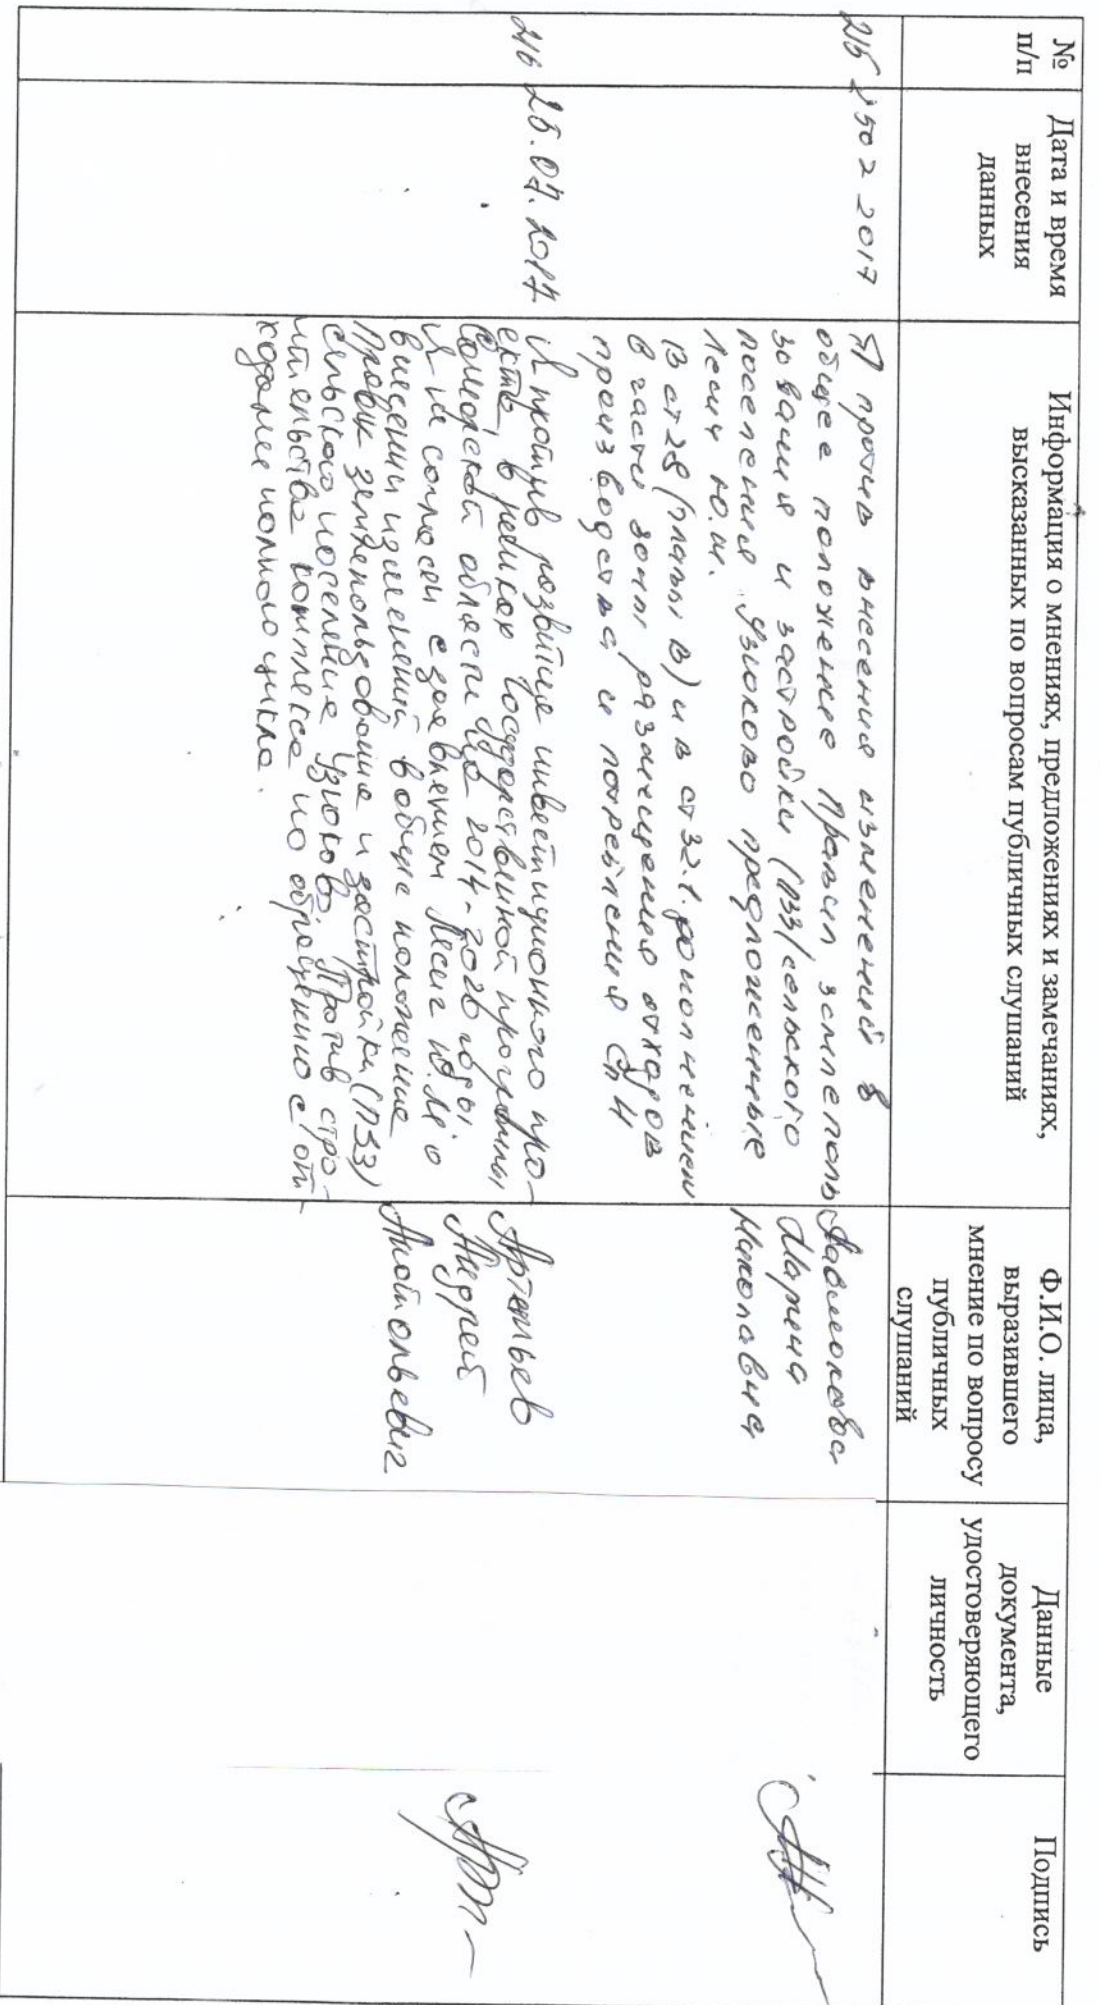 №
п/п
Дата и время
внесения
данных
Информация о мнениях, предложениях и замечаниях,
высказанных по вопросам публичных слушаний
Ф.И.О. лица,
выразившего
мнение по вопросу
публичных
слушаний
Данные
документа,
удостоверяющего
личность
Подпись
215
2502 2017
Я против внесения изменений в
общее положение Правил землеполь
зования и застройки (ПЗЗ) сельского
поселения Узюково предложенные
Лесиг Ю.М.
В ст 28 (план В) и в ст 32.1. дополнением
в части зоны размещения отходов
производства и потребления Сп 4
Марина
Николаевна
216
25.02.2017
Я против развития инвестиционного про-
екта, в рамках Государственной программы
Самарской области на 2014-2020 годы.
Я не согласен с заявлением Лесиг Ю.М. о
внесении изменений в общие положение
Правил землепользование и застройки (ПЗЗ)
сельского поселение Узюково. Против стро-
ительства комплекса по обращению с от-
ходами полного цикла.
Артемьев
Андрей
Анатольевич